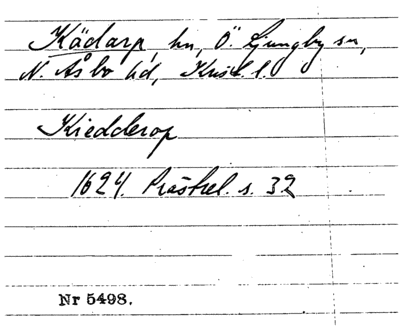 Kädarp, hn, Ö. Ljungby sn,
N. Åsbo hd, Krist. l.
Kiedderop
1624. Prästrel. s. 32
Nr 5498.